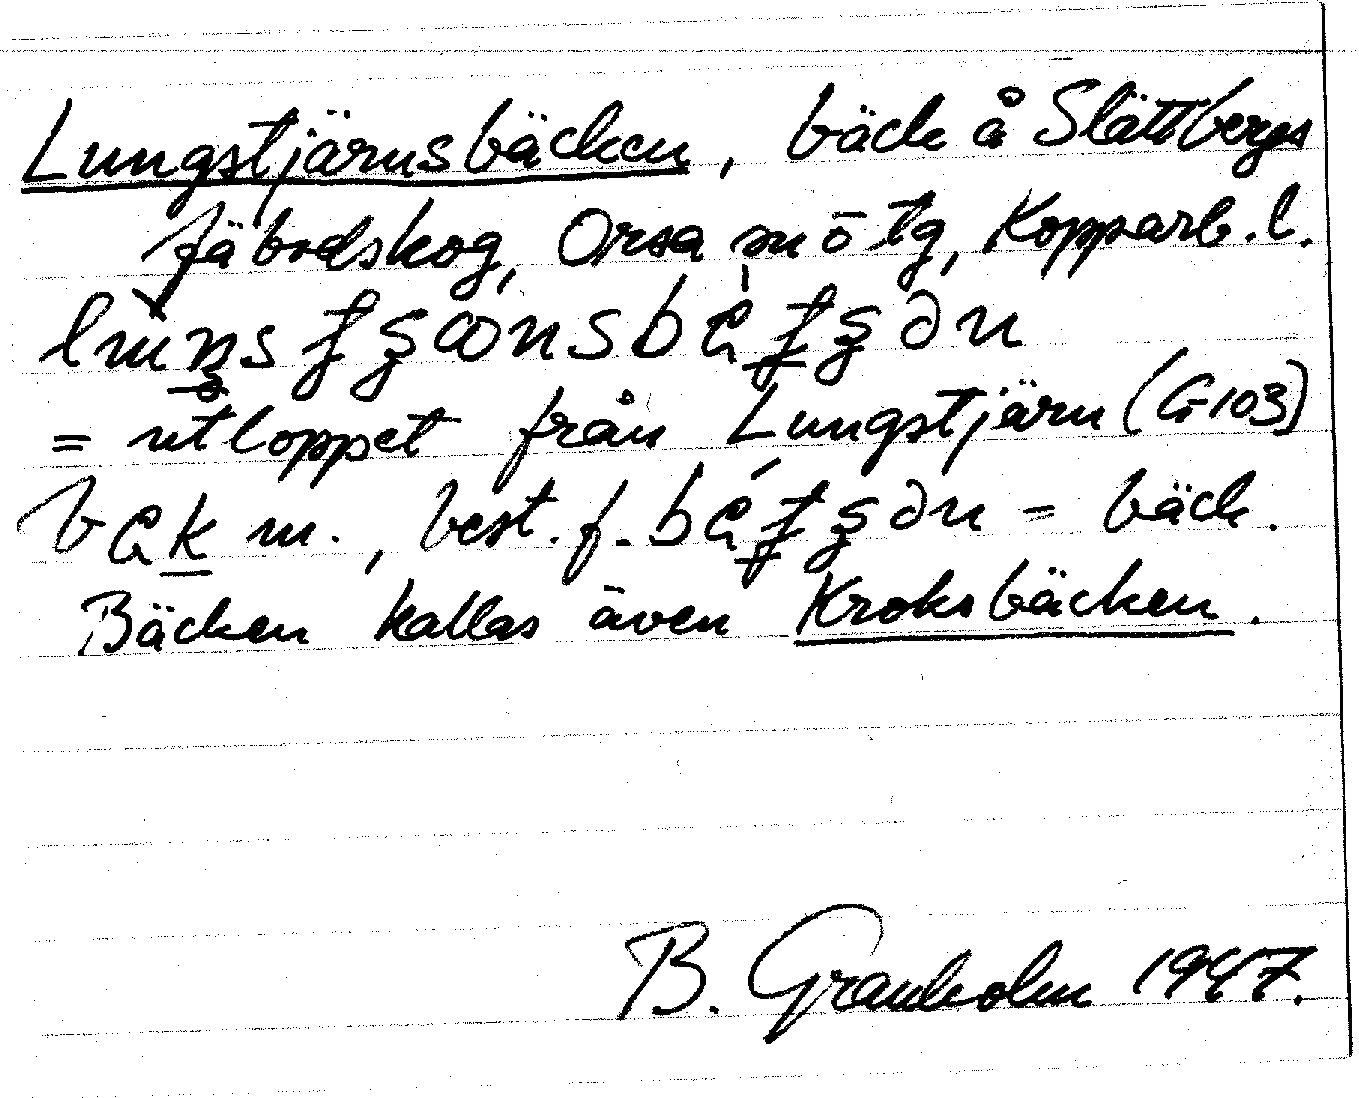 Lungstjärnsbäcken, bäck å Slättbergs
fäbodskog, Orsa sn ō tg, Kopparb. l.
= utloppet från Lungstjärn (G103)
m., best. f. = bäck.
Bäcken kallas även Kroksbäcken.
B. Granholm 1947.